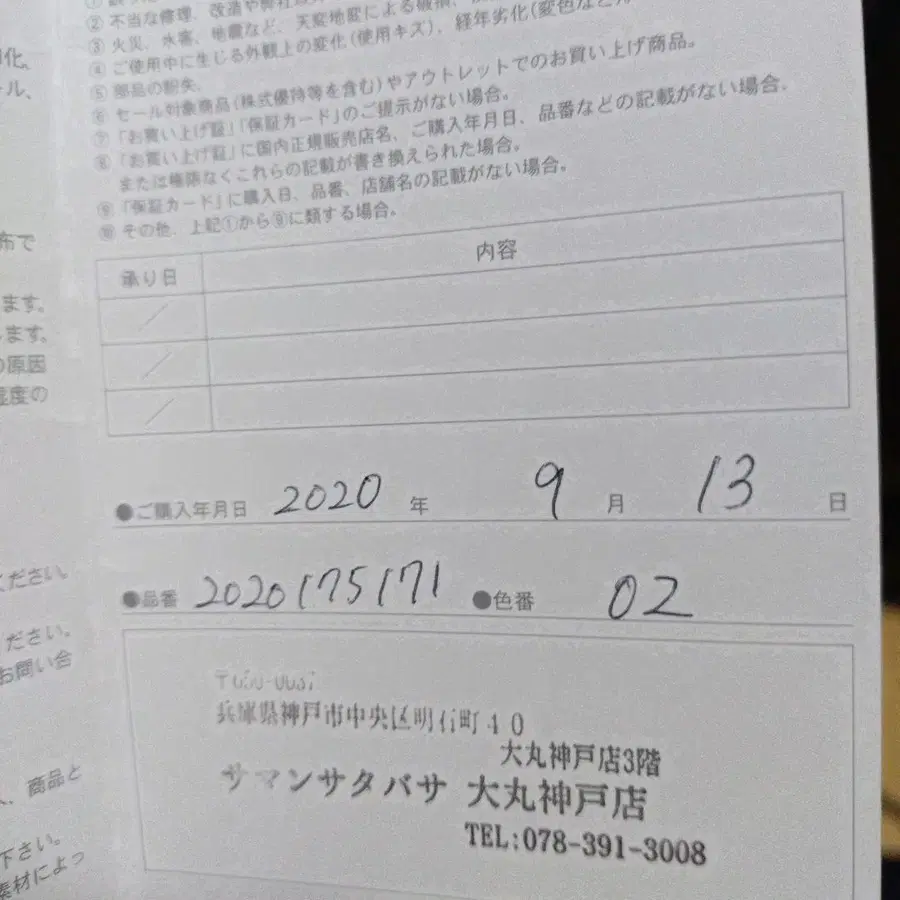 化、
ール、
布で
ます。
します。
の原因
湿度の
ください。
ださい。
お問い合
、商品と
下さい。
素材によっ
② 不当な修理、改造や弊社以外
③ 火災、水害、地震など、天変地変による破損、
④ ご使用中に生じる外観上の変化(使用キズ)、経年劣化(変色など
⑤ 部品の紛失。
⑥ セール対象商品(株式優待等を含む)やアウトレットでのお買い上げ商品。
⑦ 「お買い上げ証」「保証カード」のご提示がない場合。
⑧ 「お買い上げ証」に国内正規販売店名、ご購入年月日、品番などの記載がない場合、
または権限なくこれらの記載が書き換えられた場合。
⑨ 「保証カード」に購入日、品番、店舗名の記載がない場合。
⑩ その他、上記①から⑨に類する場合。
承り日 内容
/
/
/
●ご購入年月日 2020 年 9 月 13 日
●品番 2020175171 ●色番 02
兵庫県神戸市中央区明石町40
大丸神戸店3階
サマンサタバサ 大丸神戸店
TEL:078-391-3008